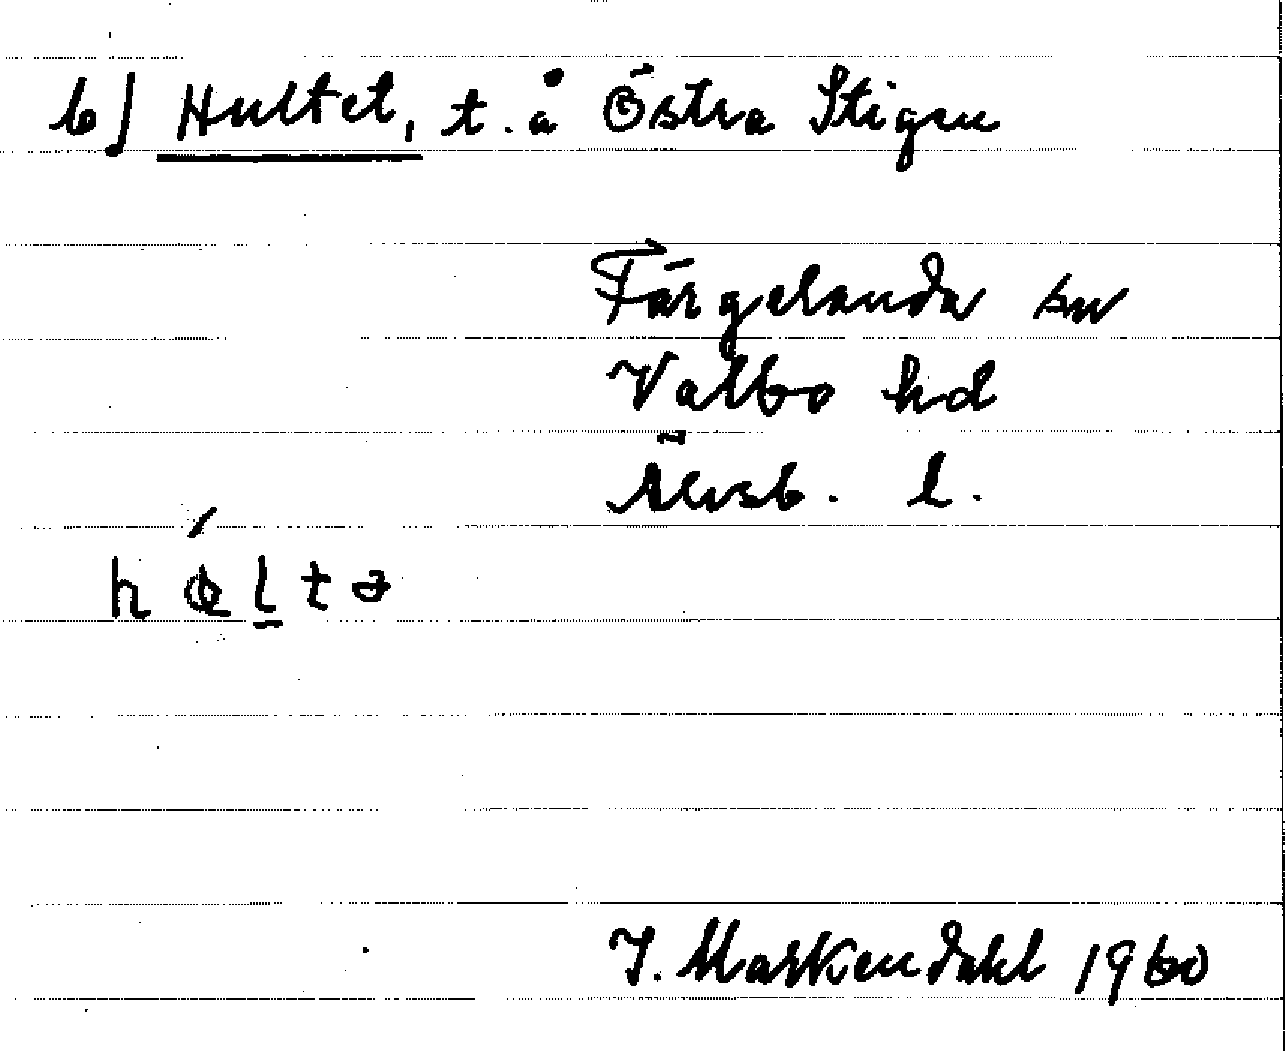 b) Hultet, t. å Östra Stigen
Färgelanda sn
Valbo hd
Älvsb. l.
J. Markendahl 1960